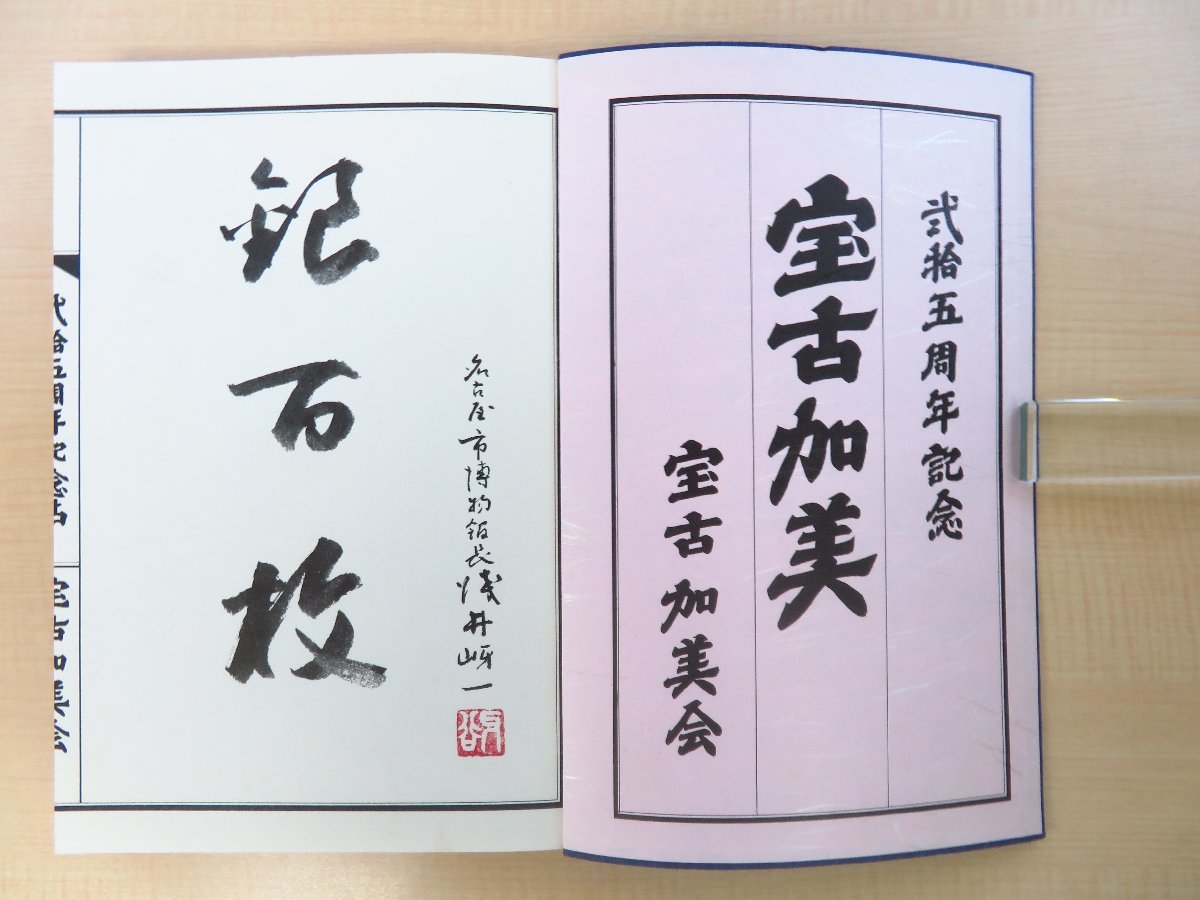 弐拾五周年記念
宝古加美
宝古加美会
銀百枚
名古屋市博物館長浅井岈一
弐拾五周年記念
宝古加美会